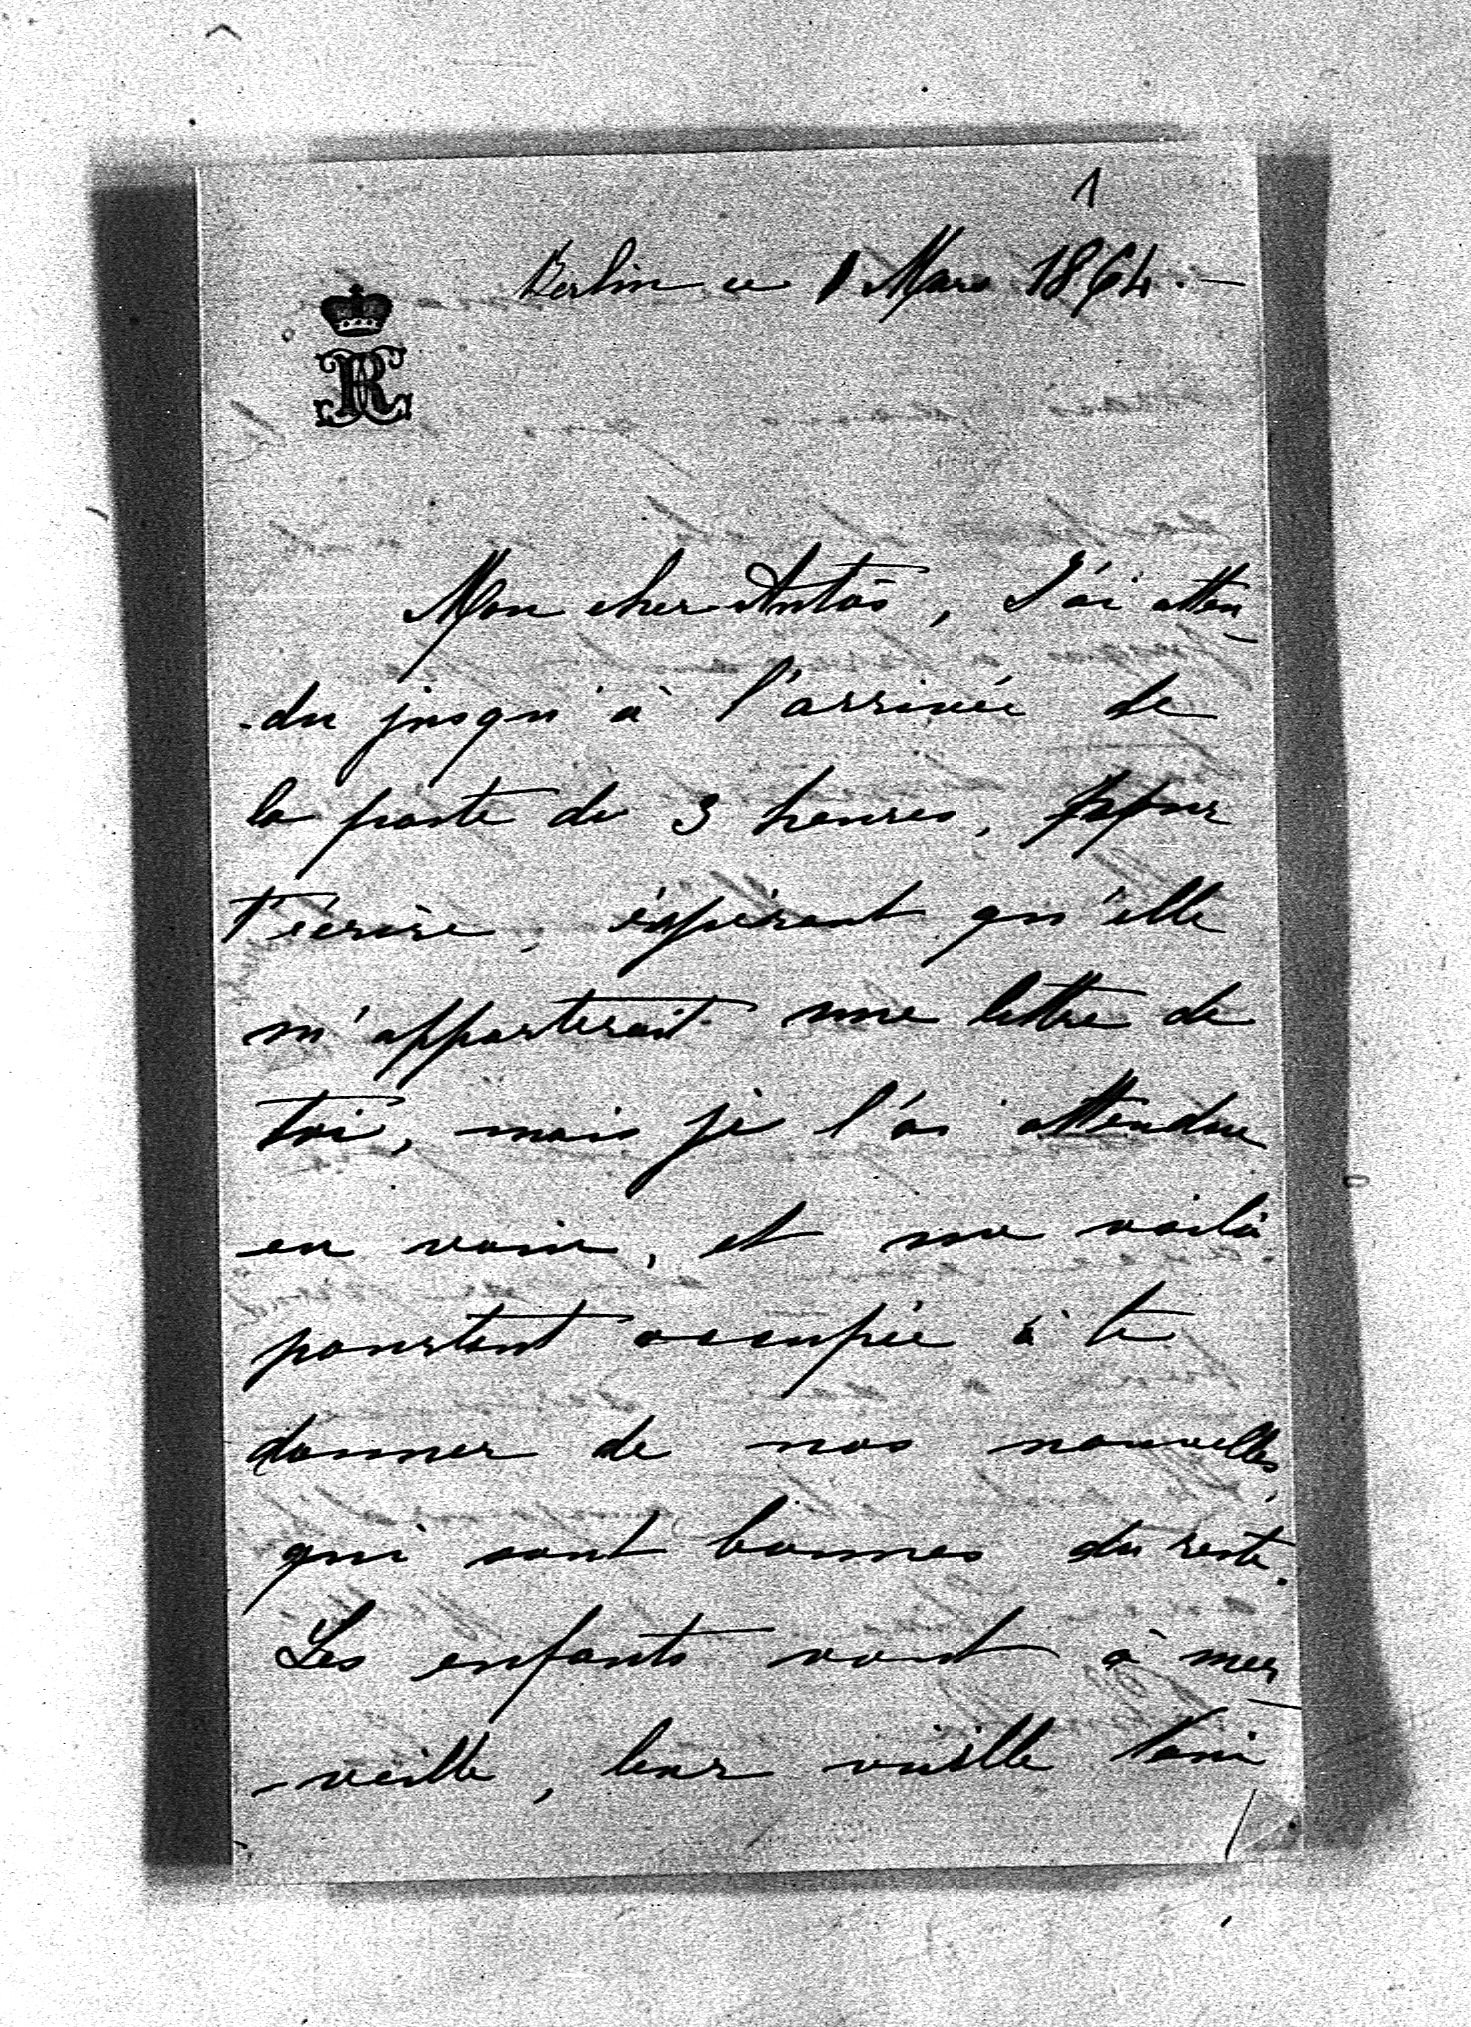 1
Berlin ce 1 Mars 1864.
Mon cher Antoś, J'ai atten
-du jusqu'à l'arrivée de
la poste de 3 heures, pour
t'écrire, éspérant qu'elle
m'apporterait une lettre de
toi, mais je l'ai attendue
en vain, et me voilà
pourtant occupée à te
donner de nos nouvelles,
qui sont bonnes du reste.
Les enfants vont à mer
-veille, leur vieille